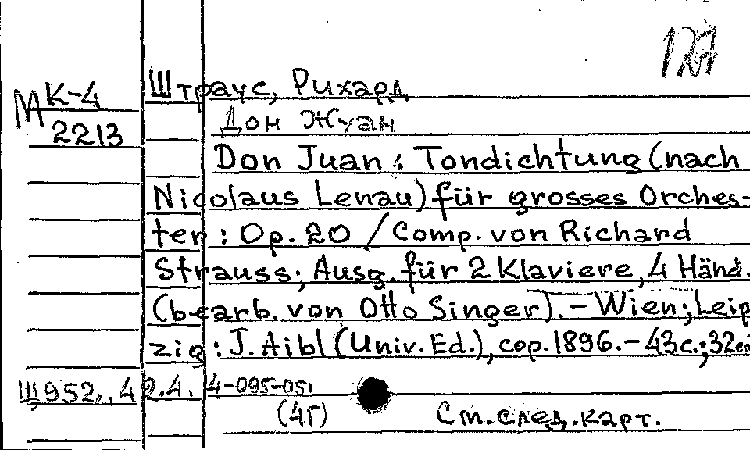 МК-4
2213
Штраус, Рихард
Дон Жуан
Don Juan : Tondichtung (nach
Nicolaus Lenau) für grosses Orches-
ter : Op. 20 / Comp. von Richard
Strauss; Ausg. für 2 Klaviere, 4 Händ.
(bearb. von Otto Singer). – Wien; Leip
zig : J. Aibl (Univ. Ed.), cop. 1896. – 43 с.; 32
Щ952..4 2.4. 4-095-051
(4Г) См. след. карт.